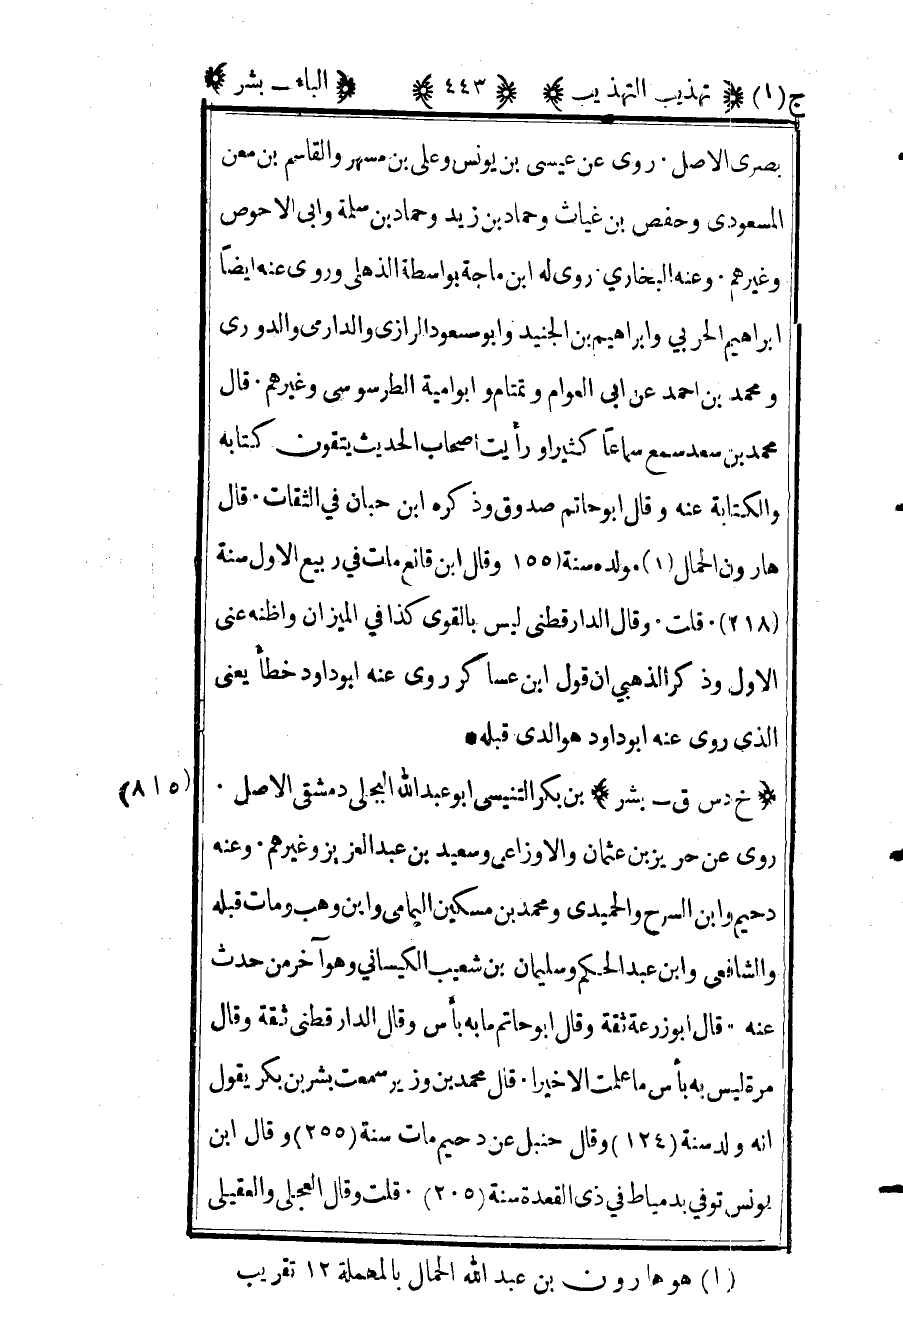 ج(١) ﴿ تهذيب التهذيب ﴾ ﴿ ٤٤٣ ﴾ ﴿ الباء ـ بشر ﴾
بصرى الاصل · روى عن عيسى بن يونس وعلى بن مسهر والقاسم بن معن
المسعودى وحفص بن غياث وحماد بن زيد وحماد بن سلمة وابى الاحوص
وغيرهم · وعنه البخاري · روى له ابن ماجة بواسطة الذهلى وروى عنه ايضاً
ابراهيم الحربي وابراهيم بن الجنيد وابو مسعود الرازى والدارمى والدورى
و محمد بن احمد عن ابى العوام و تمتام و ابوامية الطرسوسى وغيرهم · قال
محمد بن سعد سمع سماعاً كثيرا و رأيت اصحاب الحديث يتقون كتابه
والكتابة عنه و قال ابوحاتم صدوق وذكره ابن حبان في الثقات · قال
هارون الحمال (١) · مولده سنة (١٥٥ وقال ابن قانع مات في ربيع الاول سنة
(٢١٨) · قلت · وقال الدارقطنى ليس بالقوى كذا في الميزان واظنه عنى
الاول وذكر الذهبي ان قول ابن عساكر روى عنه ابوداود خطأ يعنى
الذي روى عنه ابوداود هو الذى قبله •
﴿ خ د س ق ـ بشر ﴾ بن بكر التنيسى ابو عبدالله البجلى دمشقى الاصل · (٨١٥)
روى عن حريز بن عثمان والاوزاعى وسعيد بن عبدالعزيز وغيرهم · وعنه
دحيم وابن السرح والحميدى ومحمد بن مسكين اليمامى وابن وهب ومات قبله
والشافعى وابن عبدالحكم وسليمان بن شعيب الكيسانى وهو آخر من حدث
عنه · قال ابوزرعة ثقة وقال ابوحاتم مابه بأس وقال الدارقطنى ثقة وقال
مرة ليس به بأس ماعلمت الاخيرا · قال محمد بن وزير سمعت بشر بن بكر يقول
انه ولد سنة (١٢٤) وقال حنبل عن دحيم مات سنة (٢٥٥) و قال ابن
يونس توفي بدمياط في ذى القعدة سنة (٢٠٥) · قلت وقال العجلى والعقيلى
(١) هو هارون بن عبد الله الحمال بالمهملة ١٢ تقريب